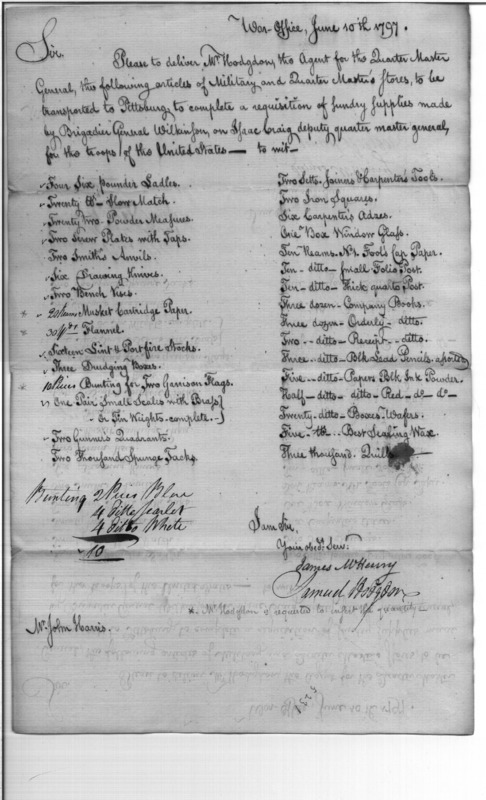 War-Office, June 10th 1797.
Sir.
Please to deliver Mr. Hodgdon, the Agent for the Quarter Master
General, the following articles of Military and Quarter Master's Stores, to be
transported to Pittsburg, to complete a requisition of sundry supplies made
by Brigadier General Wilkinson, on Isaac Craig deputy quarter master general,
for the troops of the United States — to wit —
Four Six pounder Ladles.
Twenty lbs Slow Match.
Twenty Two Powder Measures.
Two Screw Plates with Taps.
Two Smith's Anvils.
Six Drawing Knives.
Two Bench Vices.
* Musket Cartridge Paper.
* Flannel.
Sixteen Lint & Portfire Stocks.
Three Dredging Boxes.
* 10 Pieces Bunting for Two Garrison Flags.
One Pair Small Scales with Brass
or Tin Weights complete.
Two Gunner's Quadrants.
Two Thousand Spunge Tacks.
Two Setts Joiners & Carpenters Tools.
Two Iron Squares.
Six Carpenter's Adzes.
One Box Window Glass.
Ten Reams No. 1 Fools Cap Paper.
Ten - ditto - small Folio Post.
Ten - ditto - thick quarto Post.
Three dozen - Company Books.
Three dozen - Orderly - ditto.
Two - ditto - Receipt - ditto.
Three - ditto - Blk Lead Pencils assorted
Five - ditto - Papers Blk Ink Powder.
Half - ditto - ditto - Red - do - do -
Twenty - ditto - Boxes Wafers.
Five - lb - Best Sealing Wax.
Three thousand Quills
Bunting 2 Pieces Blue
4 ditto Scarlet
4 ditto White
10
I am Sir,
Your obedt. Servt.
James McHenry
Samuel Hodgdon
*. Mr. Hodgdon is requested to insert the quantity
Mr. John Harris.